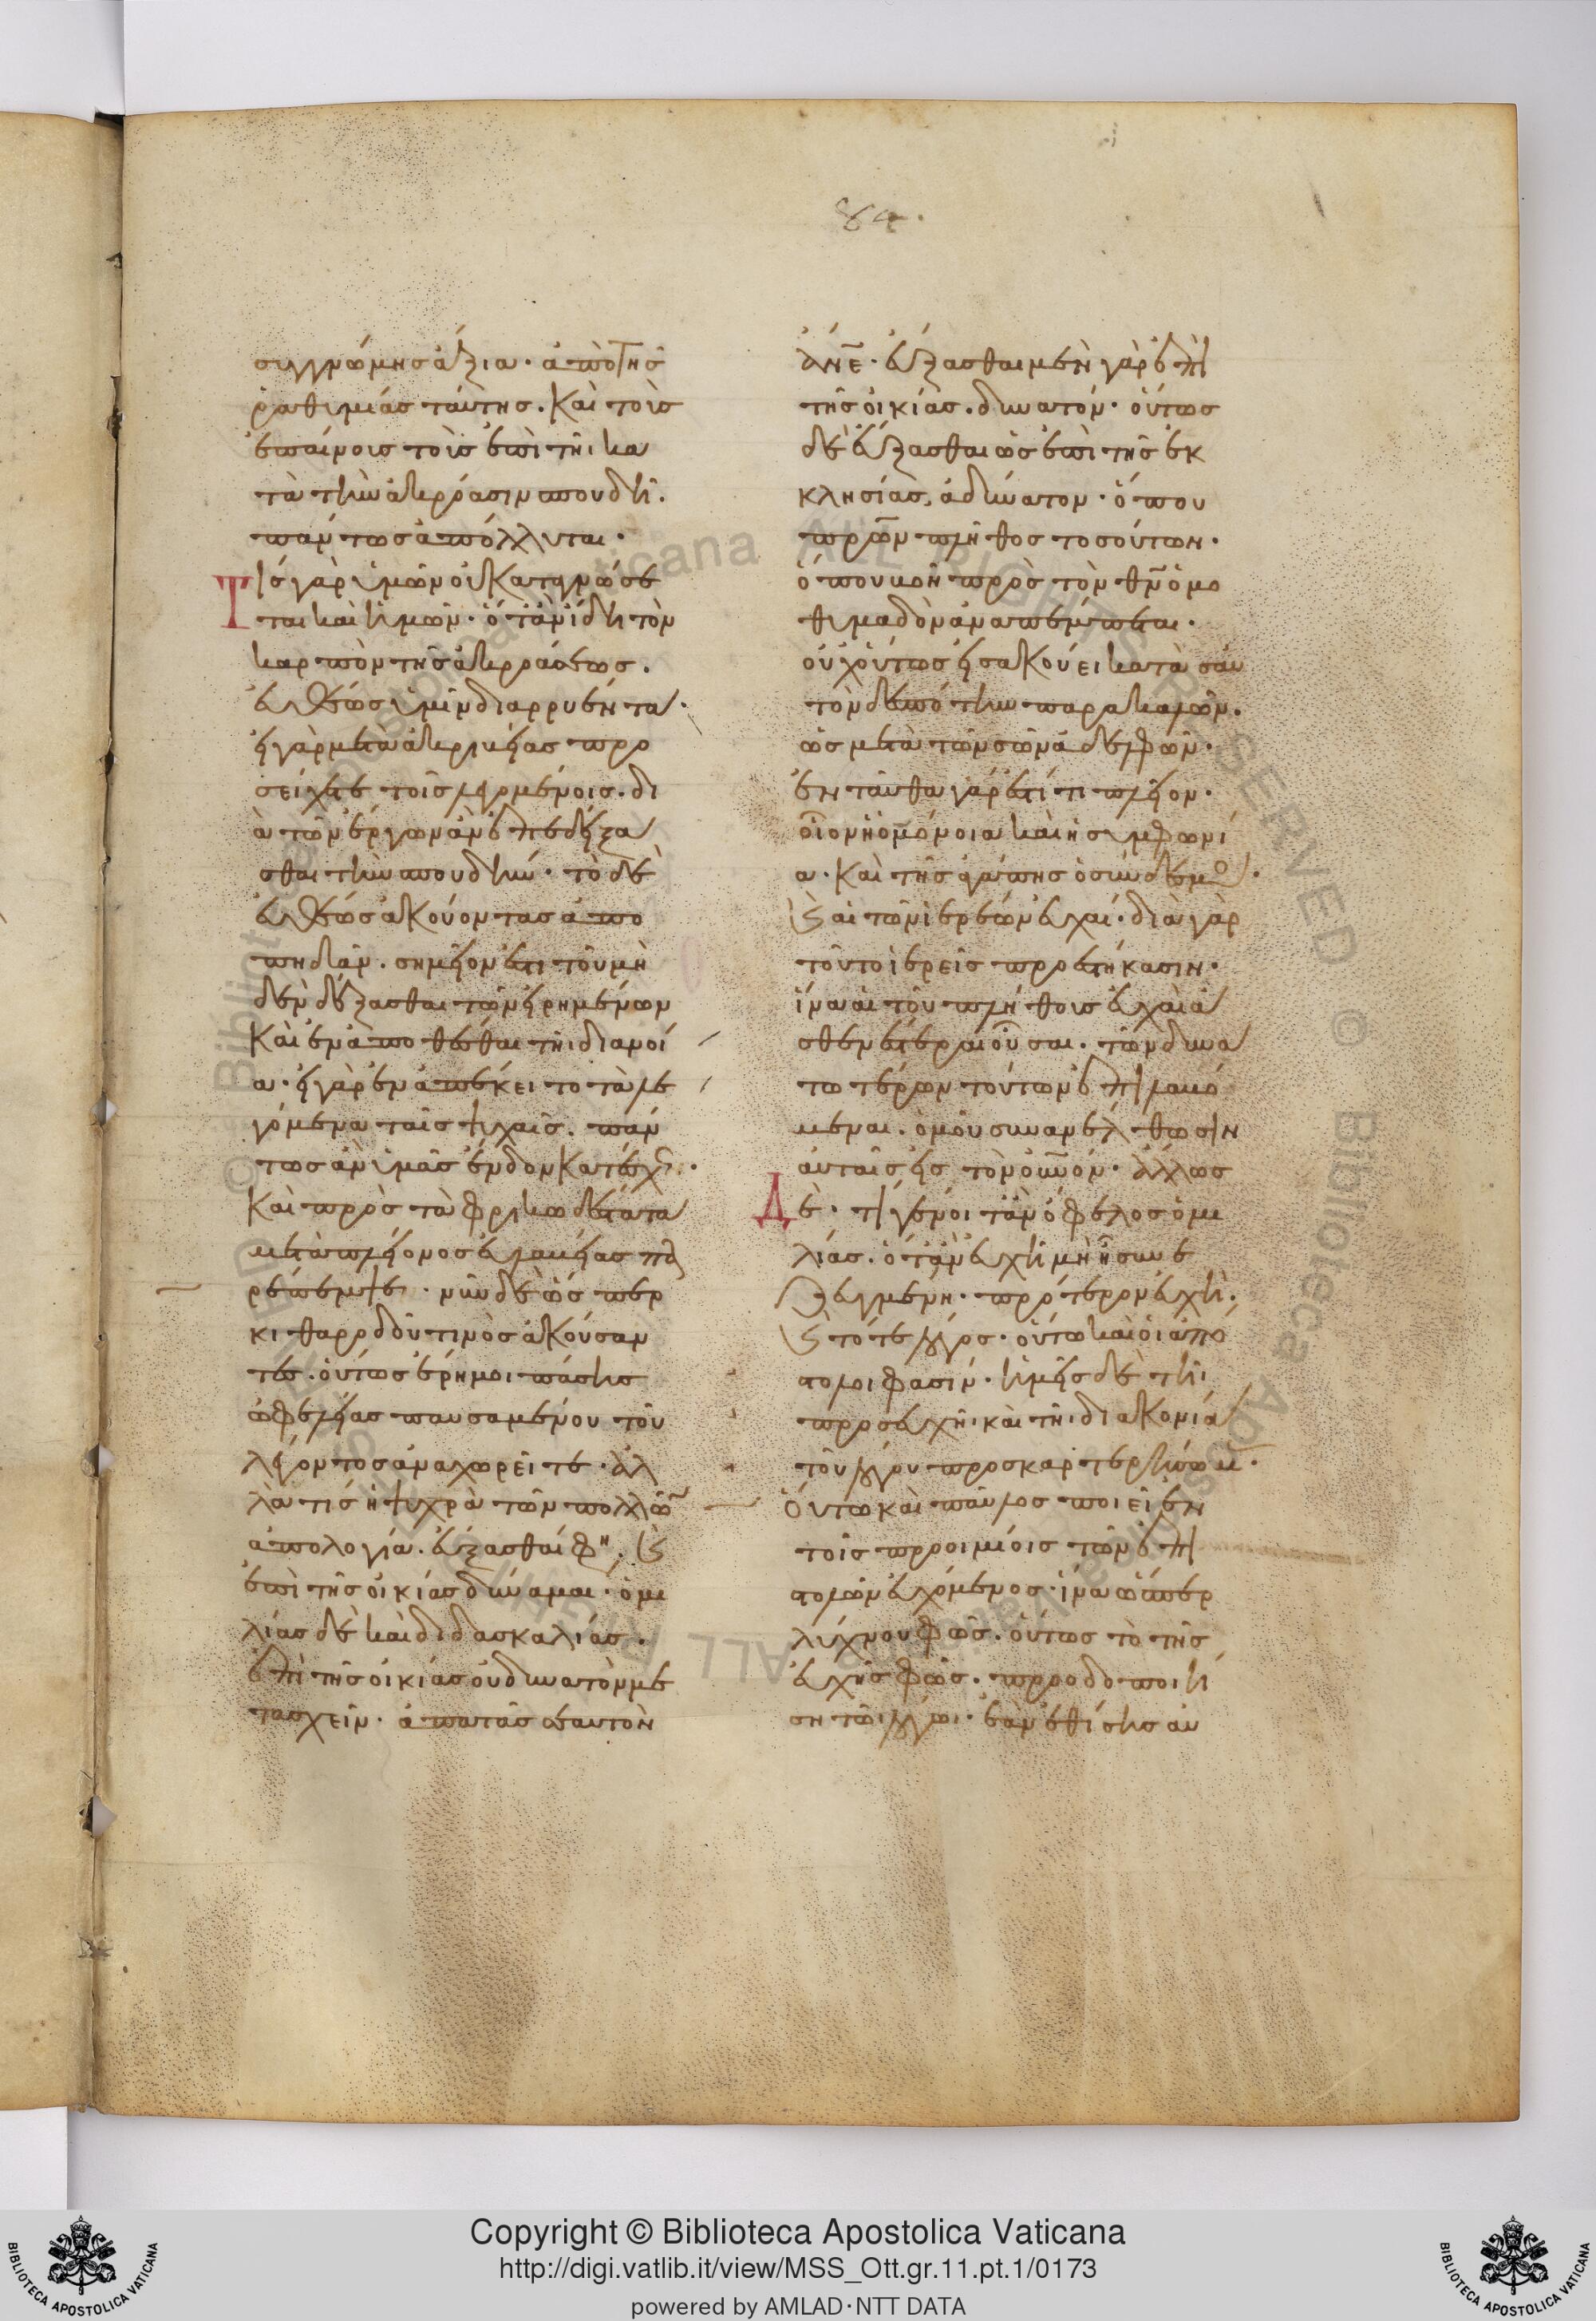 84.
συγγνώμης ἀξία· ἀπὸ τῆς
ῥαθυμίας ταύτης. Καὶ τοῖς
ἐπαίνοις τοῖς ἐπὶ τῆι κα
τὰ τὴν ἀκρόασιν σπουδῆ.
πάντως ἀπόλλυται.
Τίς γὰρ ὑμῶν οὐ καταγνώσε
ται καὶ ἡμῶν· ὅτἂν ἴδη τὸν
καρπὸν τῆς ἀκροάσεως.
εὐθέως ὑμῖν διαρρυέντα·
εἰ γὰρ μετὰ ἀκριβείας προ
σείχετε τοῖς λεγομένοις. δι
ὰ τῶν ἔργων ἂν ἐπεδείξα
σθαι τὴν σπουδήν· τὸ δὲ
εὐθέως ἀκούοντας ἀπο
πηδᾶν. σημεῖόν ἐστι τοῦ μὴ
δὲν δέξασθαι τῶν εἰρημένων
Καὶ ἐναποθέσθαι τῆι διανοί
α· εἰ γὰρ ἐναπέκειτο τὰ λε
γόμενα ταῖς ψυχαῖς. πάν
τως ἂν ὑμᾶς ἔνδον κατέσχεν·
Καὶ πρὸς τὰ φρικωδέστατα
μετὰ πλείονος εὐλαβείας πα
ρέπεμψε· νῦν δὲ ὥσπερ
κιθαρῳδοῦ τινὸς ἀκούσαν
τες. οὕτως ἔρημοι πάσης
ὠφελείας παυσαμένου τοῦ
λέγοντος ἀναχωρεῖτε· ἀλ
λὰ τίς ἡ ψυχρὰ τῶν πολλῶν
ἀπολογία. εὔξασθαί φη. καὶ
ἐπὶ τῆς οἰκίας δύναμαι· ὁμι
λίας δὲ καὶ διδασκαλίας.
ἐπὶ τῆς οἰκίας οὐ δυνατὸν με
τασχεῖν· ἀπατᾶς σεαυτὸν
ἄνε· εὔξασθαι μὲν γὰρ ἐπὶ
τῆς οἰκίας. δυνατόν· οὕτως
δὲ εὔξασθαι ὡς ἐπὶ τῆς ἐκ
κλησίας, ἀδύνατον· ὅπου
πρῶν πλῆθος τοσούτων·
ὅπου βοὴ πρὸς τὸν θν ὁμο
θυμαδὸν ἀναπέμπεται.
οὐχ οὕτως εἰσακούει κατὰ σαυ
τὸν δεσπότην παρακαλῶν.
ὡς μετὰ τῶν σῶν ἀδελφῶν·
ἐνταῦθα γάρ ἐστί τι πλεῖον·
οἷον ἡ ὁμόνοια καὶ ἡ συμφωνί
α· Καὶ τῆς ἀγάπης ὁ σύνδεσμος·
καὶ αἱ τῶν ἱερέων εὐχαί· διὰ γὰρ
τοῦτο ἱερεῖς προεστήκασιν·
ἵνα αἱ τοῦ πλήθους εὐχαὶ ἀ
σθενέστεραι οὖσαι. τῶν δυνα
τωτέρων τούτων ἐπιλαβό
μεναι. ὁμοῦ συνανέλθωσιν
αὐταῖς εἰς τὸν οὐνόν· ἄλλως
Δὲ· τί γένοιτἂν ὄφελος ὁμι
λίας. ὅτἂν εὐχὴ μὴ ἦ συνε
ζευγμένη· πρότερον εὐχὴ.
καὶ τότε λόγος· οὕτω καὶ οἱ ἀπό
στολοί φασίν· ἡμεῖς δὲ τῆι
προσευχῆι καὶ τῆι διακονία
τοῦ λόγου προσκαρτερήσωμεν·
Οὕτω καὶ παῦλος ποιεῖ ἐν
τοῖς προοιμίοις τῶν ἐπι
στολῶν εὐχόμενος· ἵνα ὥσπερ
λύχνου φῶς. οὕτως τὸ τῆς
εὐχῆς φῶς. προοδοποιή
ση τῶι λόγωι· ἐὰν ἐθίσης αυ
Copyright © Biblioteca Apostolica Vaticana
http://digi.vatlib.it/view/MSS_Ott.gr.11.pt.1/0173
powered by AMLAD·NTT DATA